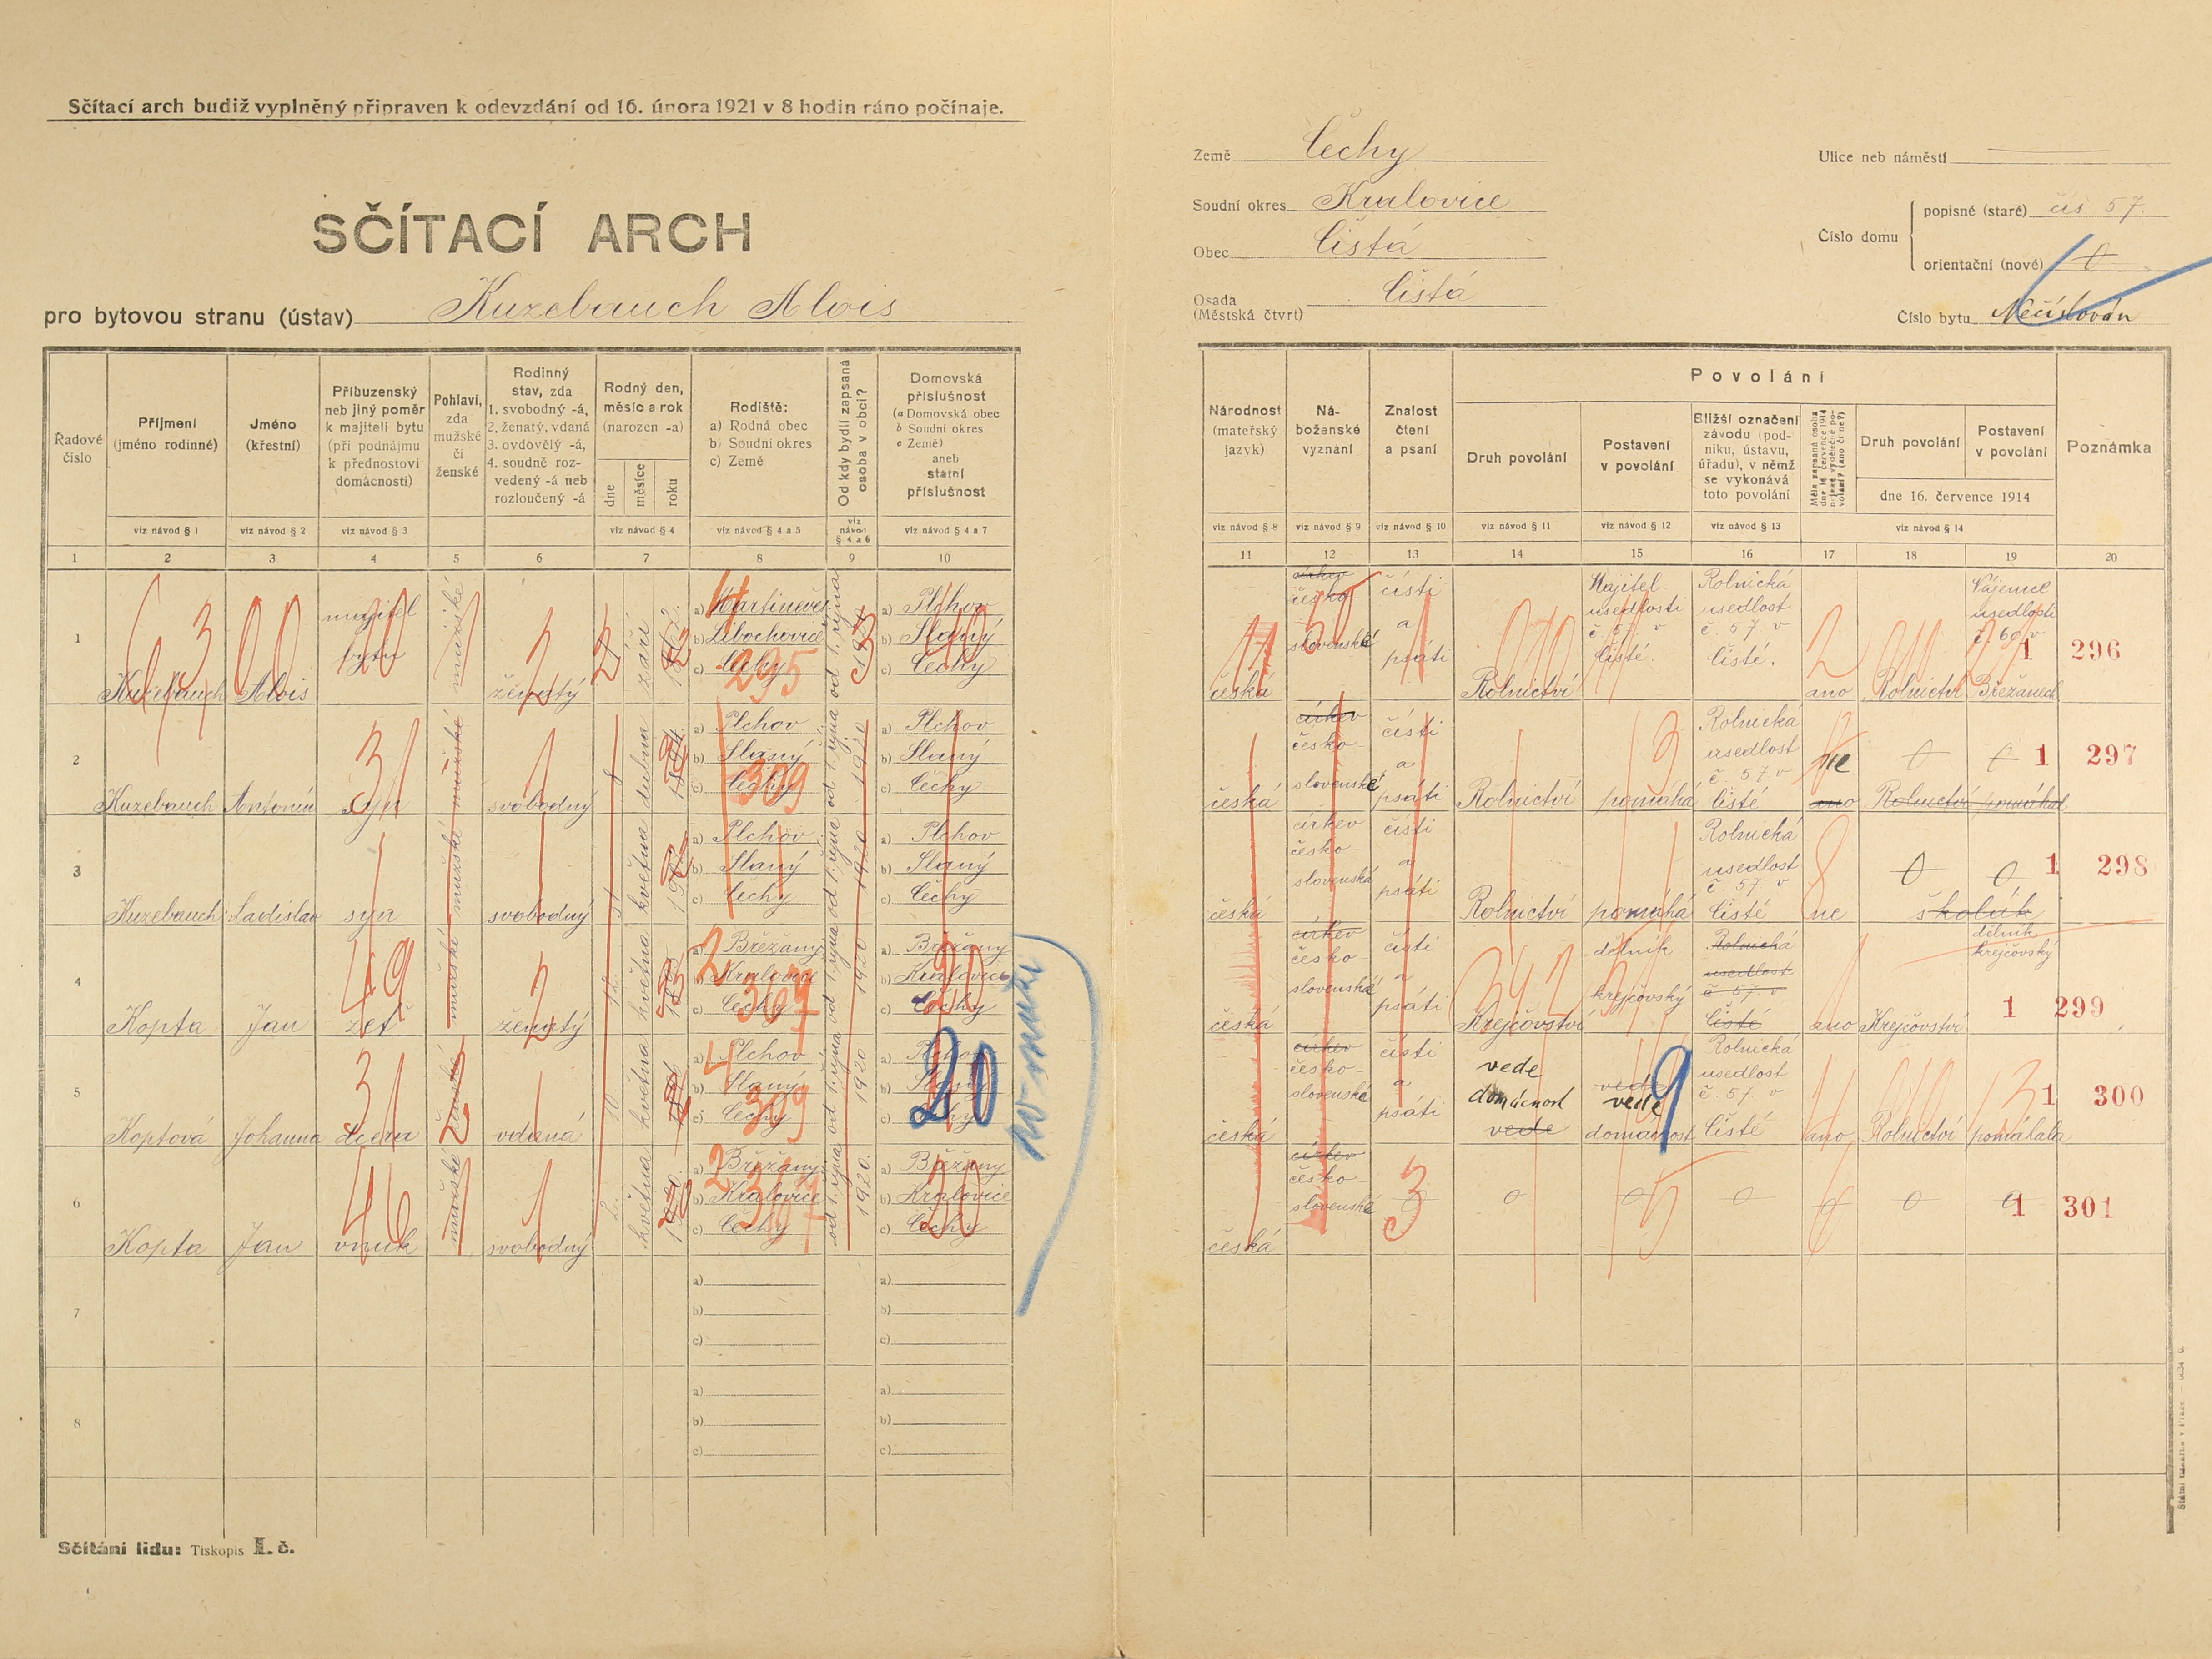 Sčítací arch budiž vyplněný připraven k odevzdání od 16. února 1921 v 8 hodin ráno počínaje.
SČÍTACÍ ARCH
pro bytovou stranu (ústav) Kuzebauch Alois
Země Čechy
Soudní okres Kralovice
Obec Čistá
Osada (Městská čtvrt) Čistá
Ulice neb náměstí
Číslo domu
popisné (staré) čís 57.
orientační (nové) 0
Číslo bytu Nečíslován
Řadové číslo
Příjmení (jméno rodinné)
viz návod § 1
Jméno (křestní)
viz návod § 2
Příbuzenský neb jiný poměr k majiteli bytu (při podnájmu k přednostovi domácnosti)
viz návod § 3
Pohlaví, zda mužské či ženské
Rodinný stav, zda
1. svobodný -á,
2. ženatý, vdaná
3. ovdovělý -á,
4. soudně roz-
vedený -á neb
rozloučený -á
Rodný den, měsíc a rok (narozen -a)
dne
měsíce
roku
viz návod § 4
Rodiště:
a) Rodná obec
b) Soudní okres
c) Země
viz návod § 4 a 5
Od kdy bydlí zapsaná osoba v obci?
viz návod § 4 a 6
Domovská příslušnost
(a Domovská obec
b Soudní okres
c Země)
aneb
státní příslušnost
viz návod § 4 a 7
Národnost (mateřský jazyk)
viz návod § 8
Ná-
boženské
vyznání
viz návod § 9
Znalost čtení a psaní
viz návod § 10
Povolání
Druh povolání
viz návod § 11
Postavení v povolání
viz návod § 12
Bližší označení závodu (pod-
niku, ústavu, úřadu), v němž se vykonává toto povolání
viz návod § 13
Druh povolání
Postavení v povolání
dne 16. července 1914
viz návod § 14
Poznámka
1 2 3 4 5 6 7 8 9 10
11 12 13 14 15 16 17 18 19 20
1 Kuzebauch Alois majitel bytu mužské ženatý září
a) Martineves
b) Libochovice
c) Čechy
od 1. října 1920
a) Plchov
b) Slaný
c) Čechy
česká církev česko-
slovenské čísti a psáti Rolnictví
Majitel usedlosti č. 57 v Čisté.
Rolnická usedlost č. 57 v Čisté.
ano Rolnictví
Nájemce usedlosti č. 60 v Břežanech
1 296
2 Kuzebauch Antonín syn mužské svobodný dubna
a) Plchov
b) Slaný
c) Čechy
od 1. října 1920
a) Plchov
b) Slaný
c) Čechy
česká církev česko-
slovenské čísti a psáti Rolnictví pomáhá
Rolnická usedlost č. 57 v Čisté
ne ano 0 0
Rolnictví pomáhal
1 297
3 Kuzebauch Ladislav syn mužské svobodný května
a) Plchov
b) Slaný
c) Čechy
od 1. října 1920
a) Plchov
b) Slaný
c) Čechy
česká církev česko-
slovenská čísti a psáti Rolnictví pomáhá
Rolnická usedlost č. 57 v Čisté
ne 0 0
školák
1 298
4 Kopta Jan zeť mužské ženatý 12. května
a) Břežany
b) Kralovice
c) Čechy
od 1. října 1920
a) Břežany
b) Kralovice
c) Čechy
česká církev česko-
slovenská čísti a psáti Krejčovství
dělník krejčovský
Rolnická usedlost č. 57 v Čisté
ano Krejčovství
dělník krejčovský
1 299
5 Koptová Johanna dcera ženské vdaná 10. května
a) Plchov
b) Slaný
c) Čechy
od 1. října 1920
a) Plchov
b) Slaný
c) Čechy
česká církev česko-
slovenské čísti a psáti
vede domácnost
vede
vede
vede domácnost
Rolnická usedlost č. 57 v Čisté
ano Rolnictví pomáhala
1 300
6 Kopta Jan vnuk mužské svobodný 2. května 1920.
a) Břežany
b) Kralovice
c) Čechy
od 1. října 1920.
a) Břežany
b) Kralovice
c) Čechy
česká církev česko-
slovenské 0 0 0 0 0 0 0
1 301
7
a)
b)
c)
a)
b)
c)
8
a)
b)
c)
a)
b)
c)
Sčítání lidu: Tiskopis I. č.